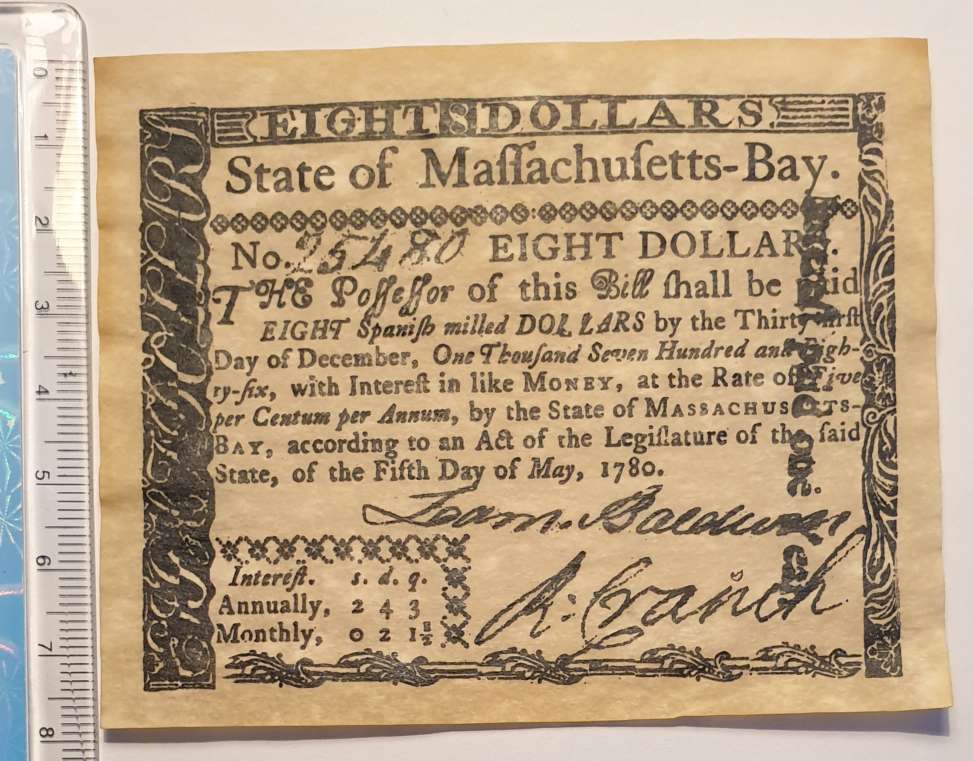 EIGHT 8 DOLLARS
State of Maſſachuſetts-Bay.
No. 25480 EIGHT DOLLARS.
THE Poſſeſſor of this Bill ſhall be paid
EIGHT Spaniſh milled DOLLARS by the Thirty-firſt
Day of December, One Thouſand Seven Hundred and Eigh-
ty-ſix, with Intereſt in like MONEY, at the Rate of Five
per Centum per Annum, by the State of MASSACHUSETTS-
BAY, according to an Act of the Legiſlature of the ſaid
State, of the Fifth Day of May, 1780.
Loam. Baldwin
R: Cranch
Intereſt. s. d. q.
Annually, 2 4 3
Monthly, 0 2 1½
0
1
2
3
4
5
6
7
8